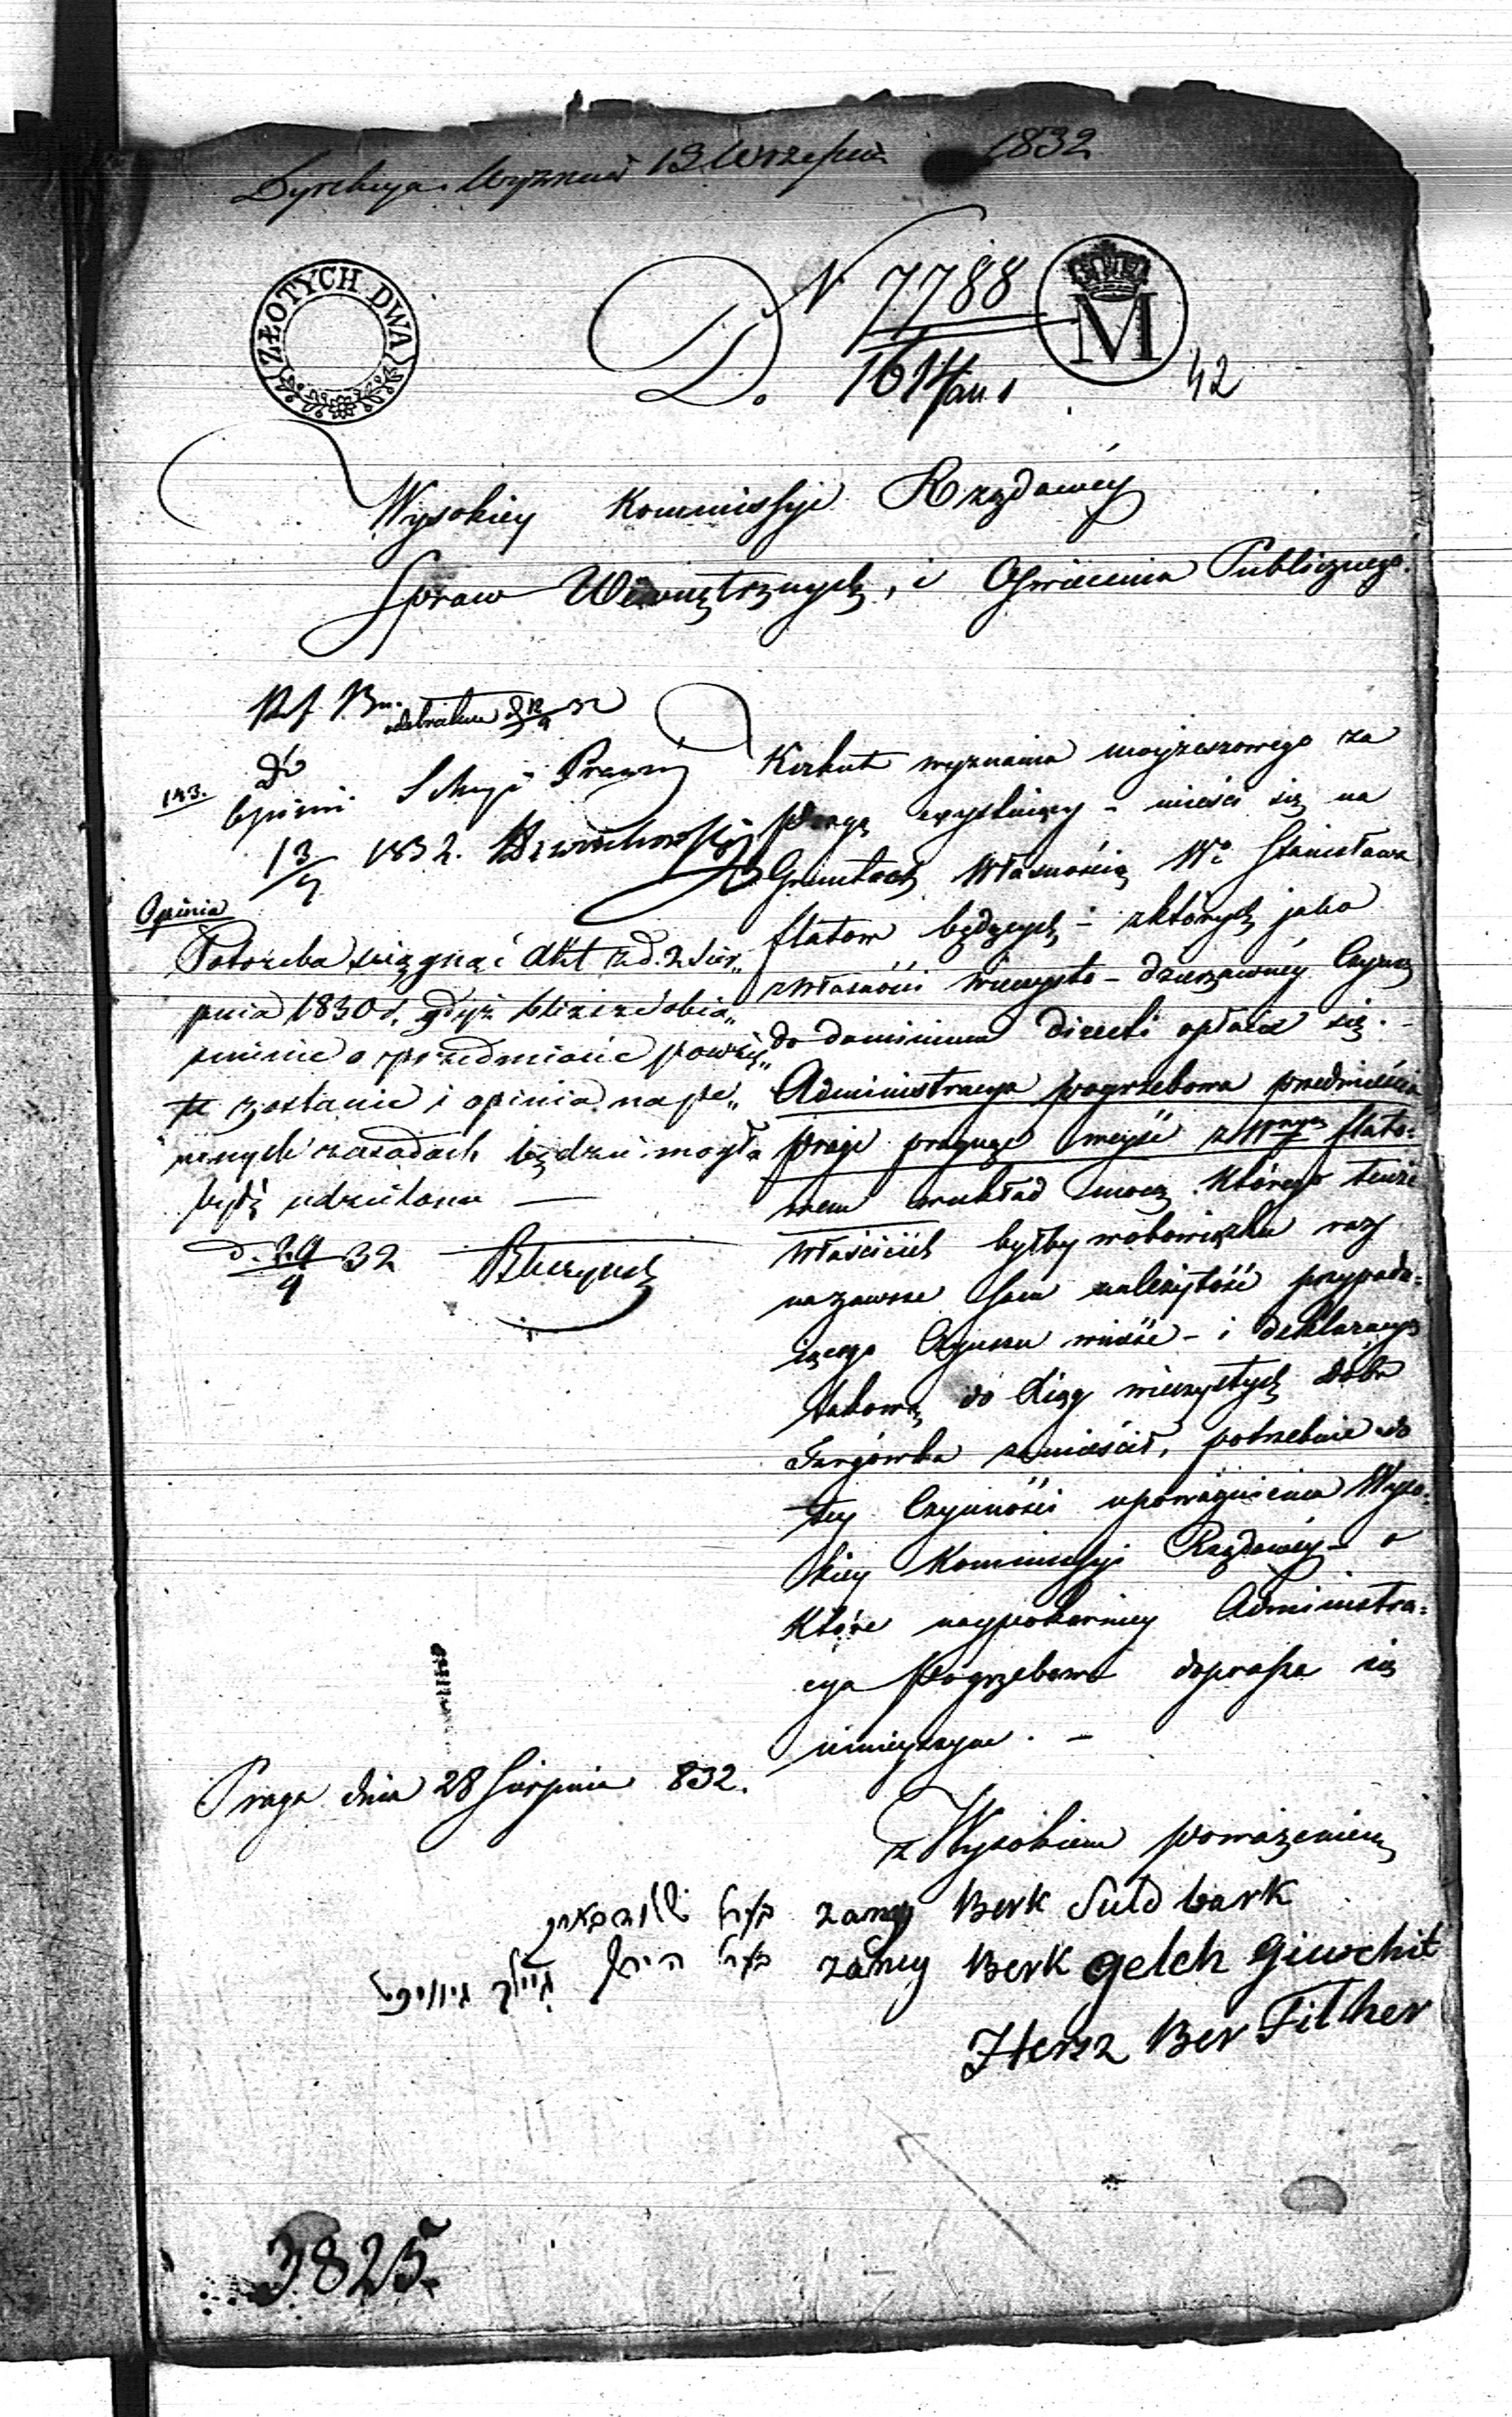 Dyrekcya Wyznań 13 Września 1832
ZŁOTYCH DWA
D. N 7788
1614
M
42
Wysokiey Kommissyi Rządowéy
Spraw Wewnętrznych, i Oświecenia Publicznego.
odebrałem d 12/9 32
Do
143. Opinii Sekcyi Prawnéj
13/9 1832.
Opinia
Potrzeba sciągnąć Akt z d. 2 Sier„
pnia 1830 r. gdyż bliższe obja„
śnienie o przedmiocie powzię„
te zostanie i opinia na pe„
wnych zasadach będzie mogła
bydź udzielona —
d. 29/9 32
Kirkut wyznania mojżeszowego za
Pragą exystujący – mieści się na
Gruntach Własnością Wo Stanisława
flatow będących – z których jako
z własności wieczysto – dzierzawnéy Czynsz
do dominium directi opłaca się. –
Administracya pogrzebowa przedmieścia
Pragi pragnąc wejść z Wnym flato=
wem w układ mocą którego tenże
właściciel byłby w obowiązku raz
na zawsze sam należytość przypada=
iącego Czynszu wnieść – i deklaracyą
takową do Xiąg wieczystych dóbr
Targówka zamieścić, potrzebuie do
tey Czynności upoważnienia Wyso=
kiey Kommissyi Rządowéy – o
które naypokorniey Administra=
cya Pogrzebowa doprasza się
ninieyszym. –
Praga dnia 28 Sierpnia 832.
z Wysokiem poważeniem
Berk
Berk Gelch
Hersz Ber
3825